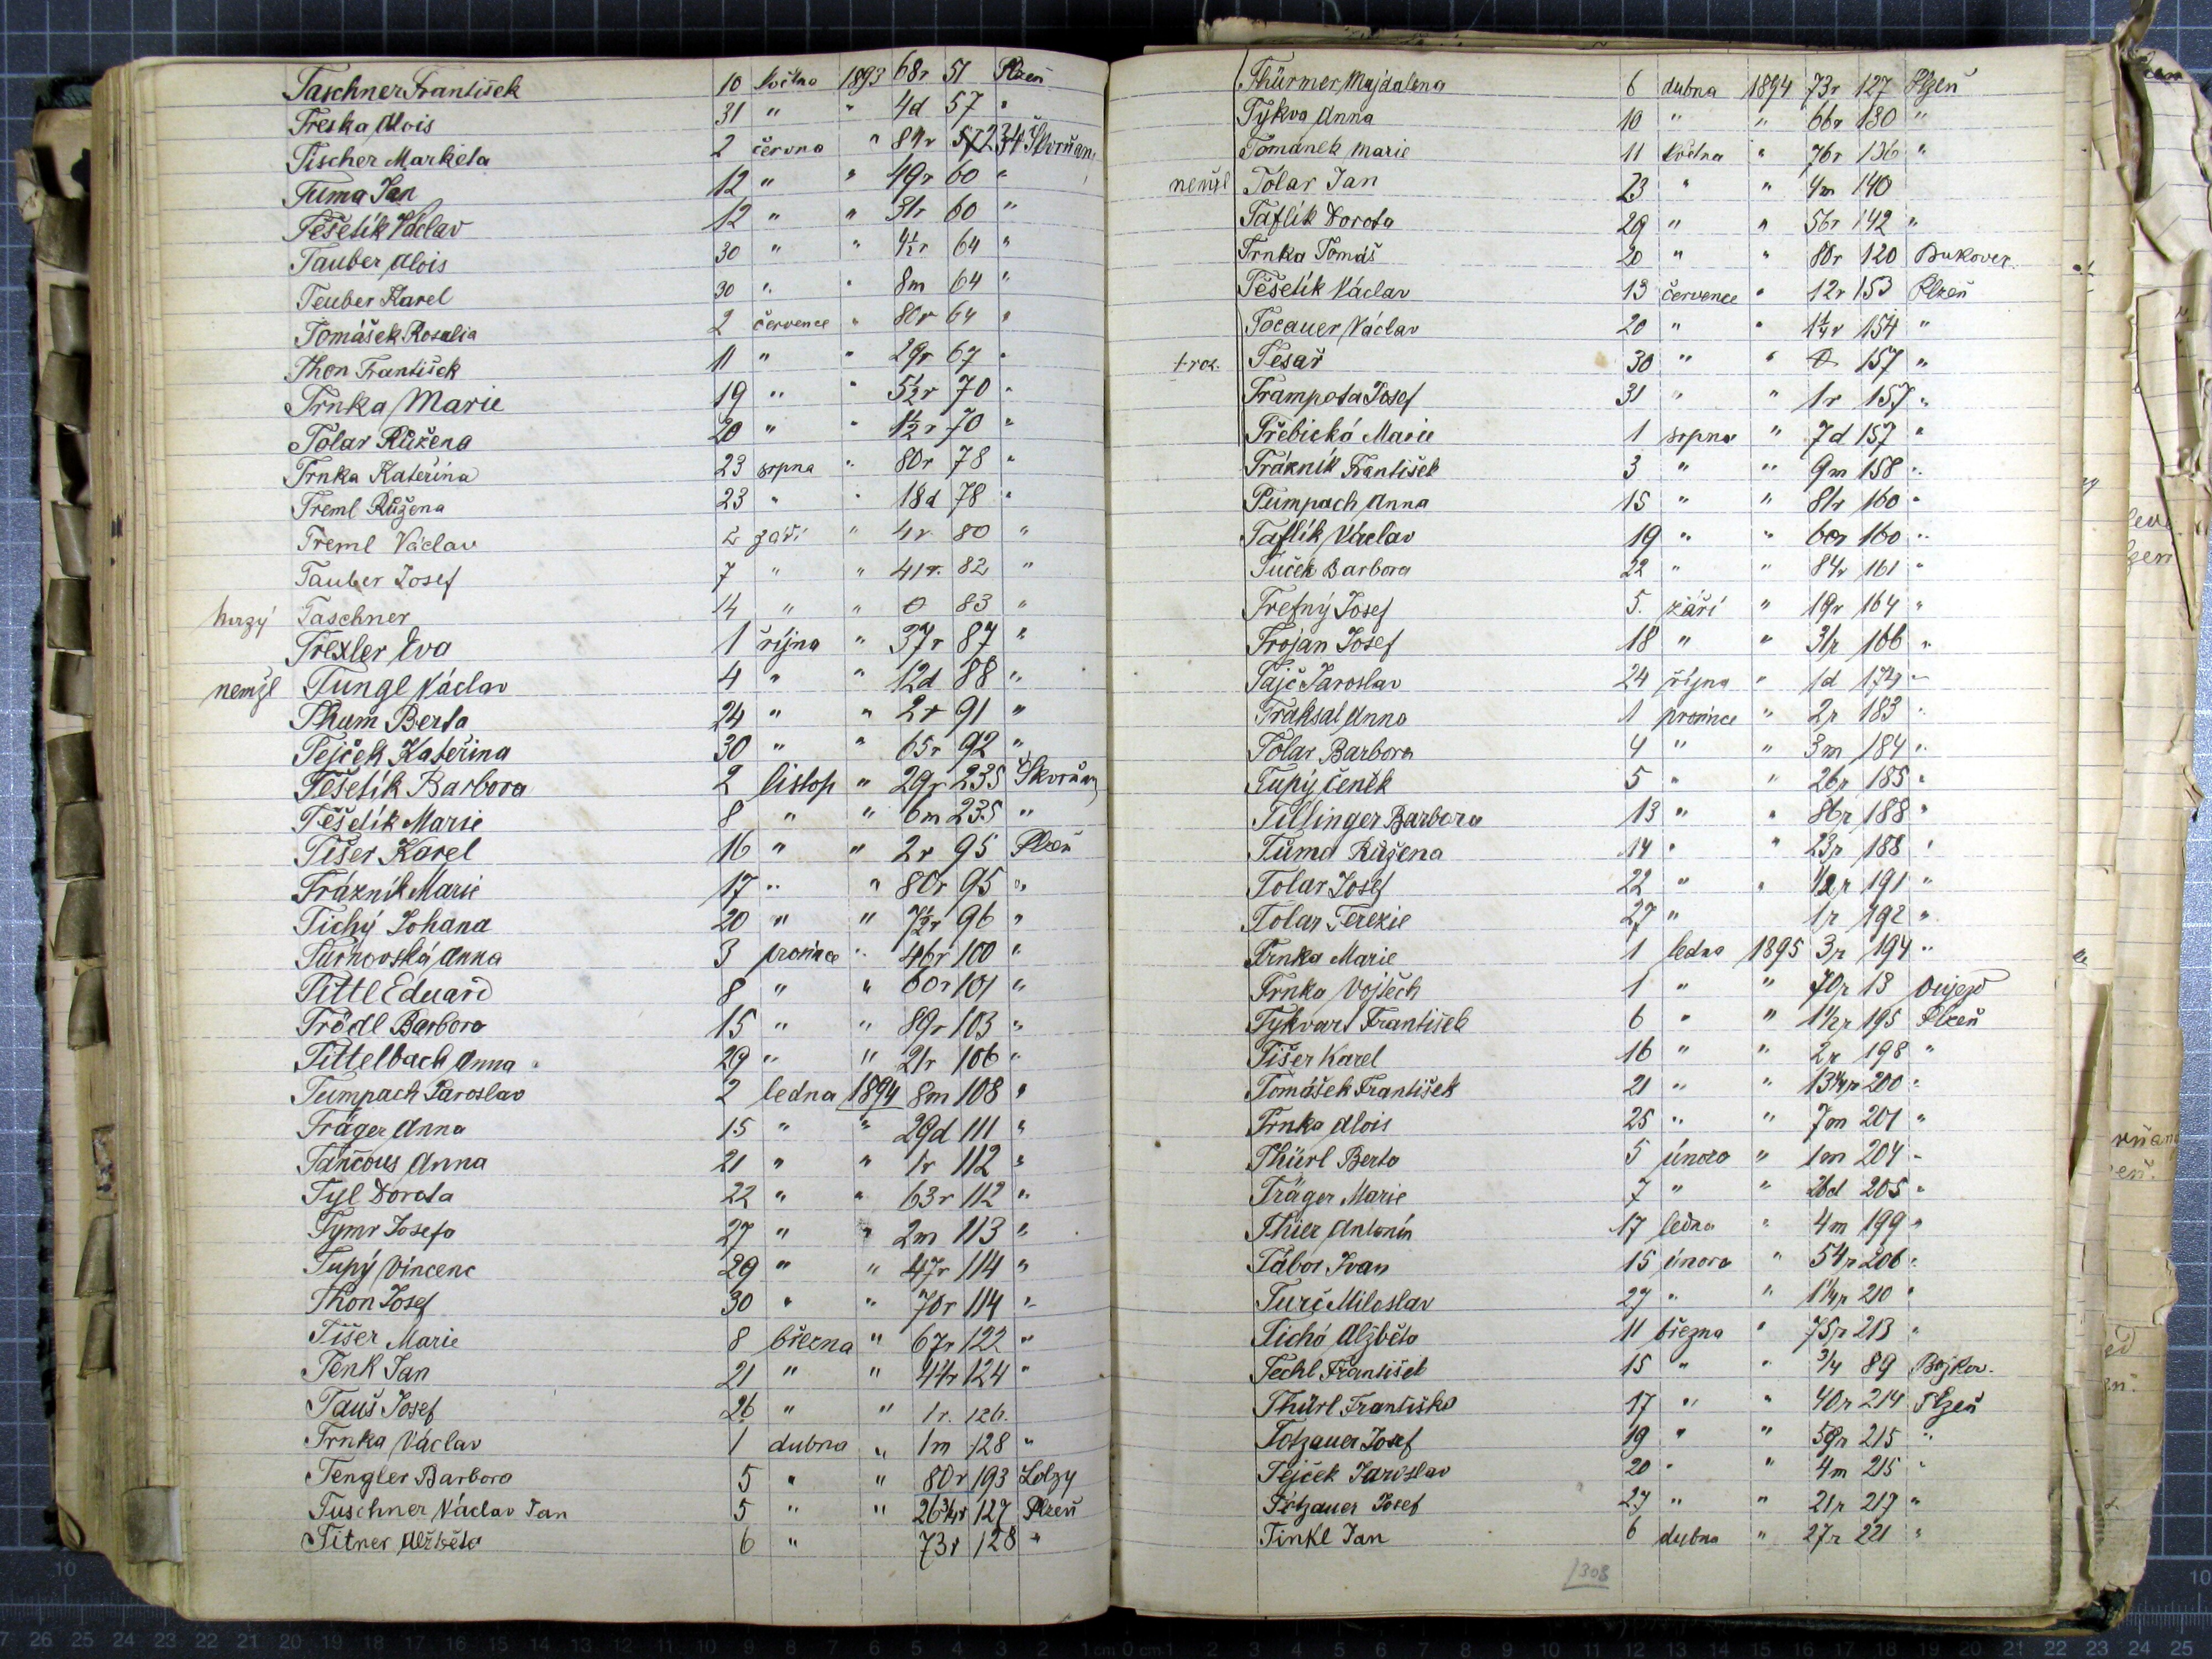 Taschner František 10 květno 1893 68r 51 Plzeň
Treska Alois 31 " " 4d 57 "
Tischer Marketa 2 června " 84r 234 Škvrňan
Tuma Jan 12 " " 49r 60 "
Těšetík Václav 12 " " 31r 60 "
Tauber Alois 30 " " 4½r 64 "
Teuber Karel 30 " " 8m 64 "
Tomášek Rosalia 2 července " 80r 64 "
Thon František 11 " " 29r 67 "
Trnka Marie 19 " " 5½r 70 "
Tolar Růžena 20 " " 1½r 70 "
Trnka Kateřina 23 srpna " 80r 78 "
Treml Růžena 23 " " 18d 78 "
Treml Václav 2 září " 4r 80 "
Tauber Josef 7 " " 41r. 82 "
Taschner 14 " " 0 83 "
Trexler Eva 1 října " 37r 87 "
nemžl Tungl Václav 4 " " 12d 88 "
Thum Berta 24 " " 2r 91 "
Tejček Kateřina 30 " " 65r 92 "
Těšetík Barbora 2 listop " 29r 235 Škvrňan
Těšetík Marie 8 " " 6m 235 "
Tišer Karel 16 " " 2r 95 Plzeň
Trázník Marie 17 " " 80r 95 "
Tichý Johana 20 " " 7½r 96 "
Turnovská Anna 3 prosince " 46r 100 "
Tittl Eduard 8 " " 60r 101 "
Trödl Barbora 15 " " 89r 103 "
Tittelbach Anna 29 " " 21r 106 "
Tumpach Jaroslav 2 ledna 1894 8m 108 "
Träger Anna 15 " " 29d 111 "
Tančous Anna 21 " " 1r 112 "
Tyl Dorota 22 " " 63r 112 "
Tymr Josefa 27 " " 2m 113 "
Tupý Vincenc 29 " " 47r 114 "
Thon Josef 30 " " 70r 114 "
Tišer Marie 8 března " 67r 122 "
Tenk Jan 21 " " 44r 124 "
Tauš Josef 26 " " 1r. 126.
Trnka Václav 1 dubna " 1m 128 "
Tengler Barbora 5 " " 80r 193 Lolzy
Tuschner Václav Jan 5 " " 26¾r 127 Plzeň
Titner Alžběta 6 " 73r 128 "
Thürmer Majdalena 6 dubna 1894 73r 127 Plzeň
Tykva Anna 10 " " 66r 130 "
Tománek Marie 11 května " 76r 136 "
nemžl Tolar Jan 23 " " 4m 140
Taflík Dorota 29 " " 56r 142 "
Trnka Tomáš 20 " " 80r 120 Bukovec
Těšetík Václav 13 července " 12r 153 Plzeň
Tocauer Václav 20 " " 1¼r 154 "
+roz. Tesař 30 " " 0 157 "
Trampota Josef 31 " " 1r 157 "
Třebická Marie 1 srpna " 7d 157 "
Trázník František 3 " " 9m 158 "
Tumpach Anna 15 " " 81r 160 "
Taflík Václav 19 " " 60r 160 "
Tuček Barbora 22 " " 84r 161 "
Trefný Josef 5. září " 19r 164 "
Trojan Josef 18 " " 31r 166 "
Tajč Jaroslav 24 října " 1d 174 "
Traksal Anna 1 prosince " 2r 183 "
Tolar Barbora 4 " " 3m 184 "
Tupý Čeněk 5 " " 26r 185 "
Tillinger Barbora 13 " " 86r 188 "
Tůma Růžena 14 " " 23r 188 "
Tolar Josef 22 " " ½r 191 "
Tolar Terezie 27 " 1r 192 "
Trnka Marie 1 ledna 1895 3r 194 "
Trnka Vojtěch 1 " " 70r 13 Oujezd
Tykvart František 6 " " 1½r 195 Plzeň
Tišer Karel 16 " " 2r 198 "
Tomášek František 21 " " 13¼r 200 "
Trnka Alois 25 " " 7m 201 "
Thürl Berta 5 února " 1m 204 "
Träger Marie 7 " " 26d 205 "
Thier Antonín 17 ledna " 4m 199 "
Tábor Ivan 15 února " 54r 206 "
Turč Miloslav 27 " " 1¼r 210 "
Tichá Alžběta 11 března " 75r 213 "
Techl František 15 " " ¾ 89 Bojkov.
Thürl Františka 17 " " 40r 214 Plzeň
Totzauer Josef 19 " " 59r 215 "
Tejček Jaroslav 20 " " 4m 215 "
Totzauer Josef 27 " " 21r 217 "
Tinkl Jan 6 dubna " 27r 221 "
308